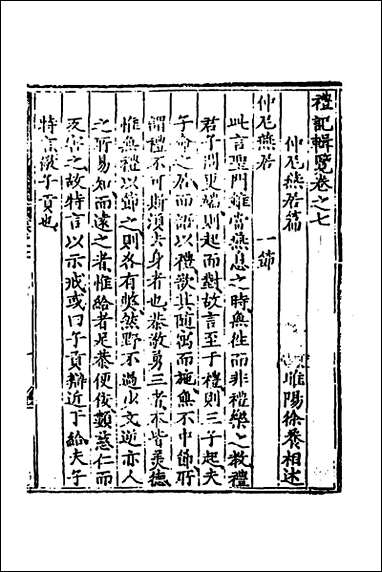 禮記輯覽卷之七
睢陽徐養相述
仲尼燕居篇
仲尼燕居 一節
此言聖門雖當燕息之時無往而非禮樂之教禮
君子問更端則起而對故言至于禮則三子起夫
子命之居而語以禮欲其隨寓而施無不中節所
謂禮不可斯須去身者也恭敬勇三者不皆美德
惟無禮以節之則各有弊然野不過少文逆亦人
之所易知而遠之者惟給者足恭便佞類慈仁而
反害之故特言以示戒或曰子貢辯近于給夫子
特言淑子貢也